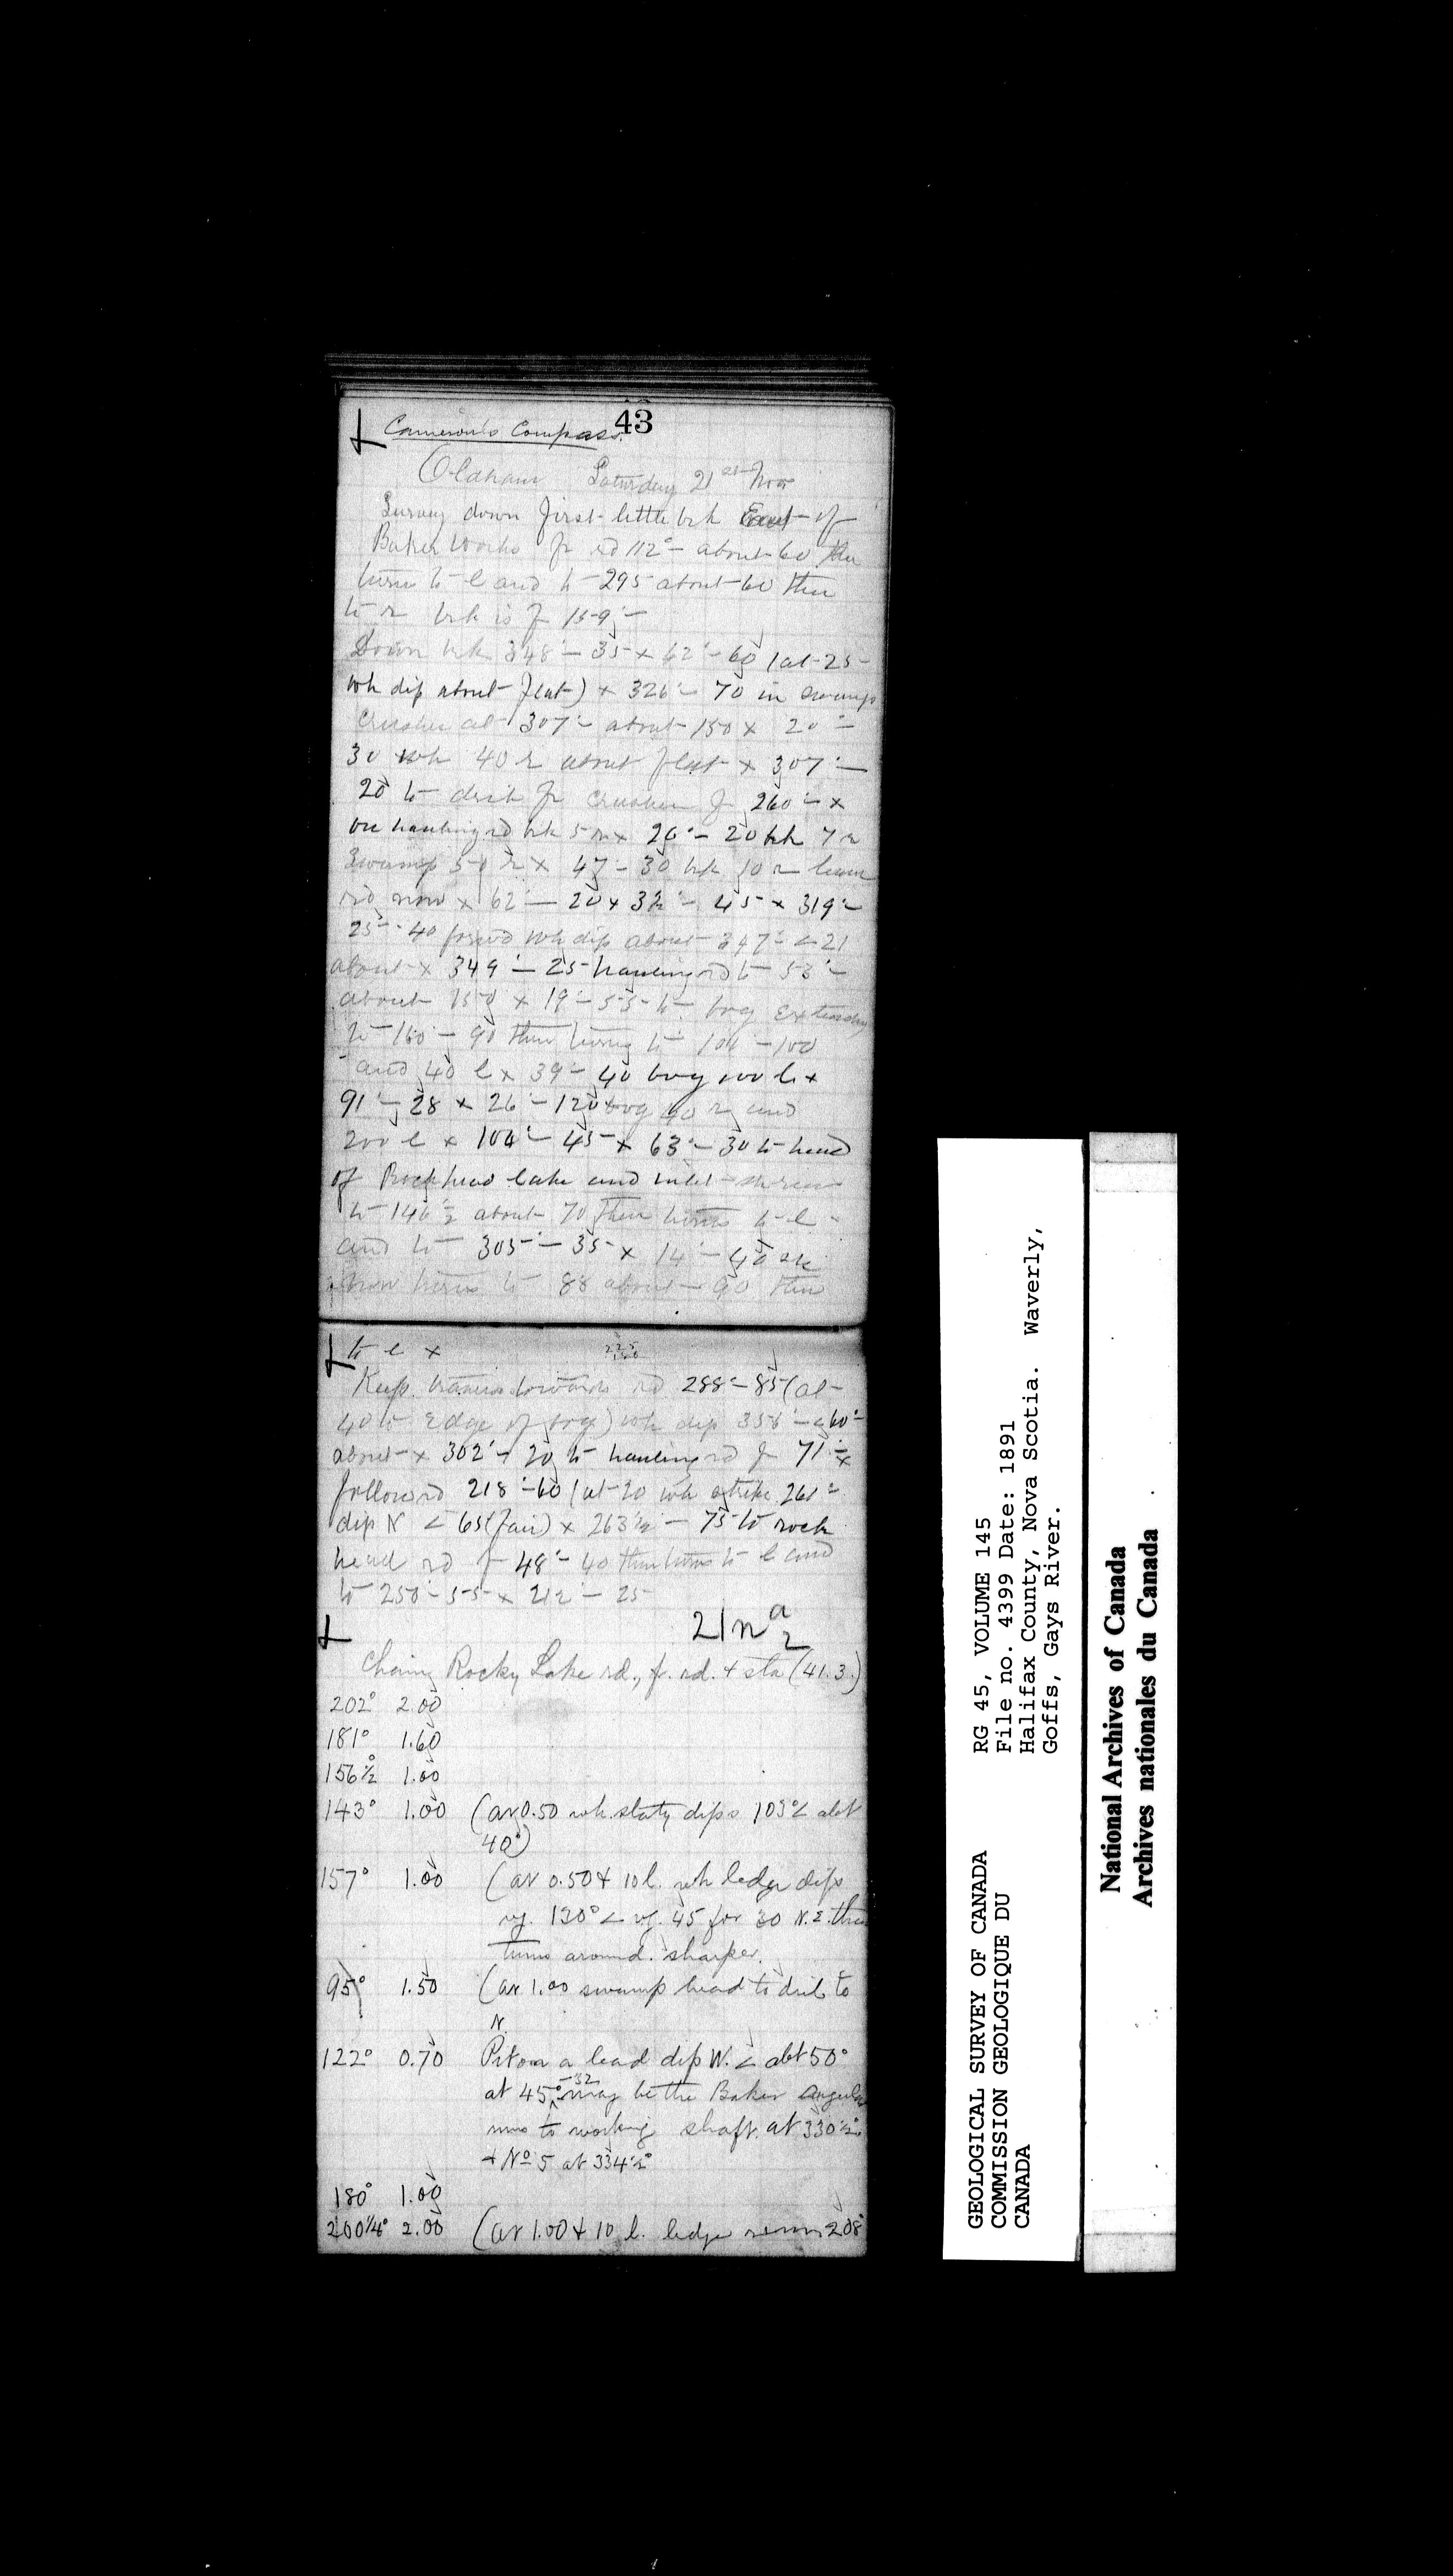 43
Cameron's Compass.
Oldham Saturday 21st Nov
Survey down first little brk East of
Baker Works fr rd 112°– about 60 then
turns to l and to 295 about 60 then
to r brk is f 159°–
Down brk 348°– 35 x 42°– 60 (at 25
wh dip about flat) x 326°– 70 in swamp
Crusher at 307°– about 150 x 20°–
30 wh 40 r about flat x 307°–
20 to fr crusher f 260°– x
on hauling rd brk 5 r x 26°– 20 brk 7 r
Swamp 50 r x 47– 30 brk 10 r leave
rd now x 62°– 20 x 32°– 45 x 319°–
25 – 40 forwd wh dip about 347°– < 21
about x 349°– 25 hauling rd to 53°–
about 150 x 19°– 55 to bog extending
to 160 – 90 then turns to 104°– 100
and 40 l x 39°– 40 bog 100 l x
91°– 28 x 26°– 120 bog 40 r and
200 l x 104°– 45 x 63°– 30 to head
of Rockhead lake and inlet
to 146½ about 70 then turns to l
and to 305°– 35 x 14°– 40
turns to 88 about 90 then
to l x
Keep towards rd 288°– 85 (at
40 to edge of bog) wh dip 356°– < 60°–
about x 302°– 20 to hauling rd f 71°– x
follow rd 218°– 60 (at 20 wh strike 261°–
dip N < 65 (fair) x 263½ – 75 to rock
head rd f 48°– 40 then turns to l and
to 250°– 55 x 212°– 25
21 n a 2
Chaing Rocky Lake rd., fr. rd. + sta (41.3.)
202° 2.00
181° 1.60
156½° 1.00
143° 1.00 (at 0.50 wh. slaty dips 103° < abt
40°)
157° 1.00 (at 0.50 + 10 l. wh ledge dips
vy. 130° < vy. 45 for 30 N.E. then
turns around. sharper.
95° 1.50 (at 1.00 swamp head to to
N.
122° 0.70 Pit on a lead dip W. < abt 50°
at 45° –32 may be the Baker angular
runs to working shaft. at 330½°
+ No 5 at 334½°
180° 1.00
200¼° 2.00 (at 1.00 + 10 l. ledge runs 208°
GEOLOGICAL SURVEY OF CANADA
COMMISSION GEOLOGIQUE DU
CANADA
RG 45, VOLUME 145
File no. 4399 Date: 1891
Halifax County, Nova Scotia. Waverly,
Goffs, Gays River.
National Archives of Canada
Archives nationales du Canada